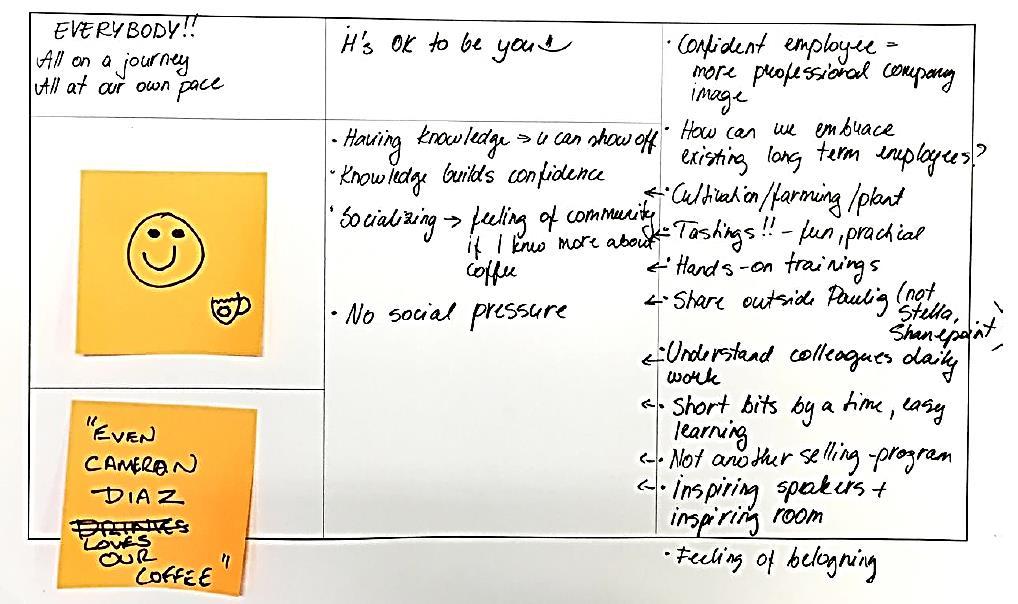 EVERYBODY!!
All on a journey
All at our own pace
"EVEN
CAMERON
DIAZ
DRINKES
LOVES
OUR
COFFEE"
It's OK to be you
• Having knowledge → u can show off
• Knowledge builds confidence
• Socializing → feeling of community
if I know more about
coffee
• No social pressure
• Confident employee =
more professional company
image
• How can we embrace
existing long term employees?
← • Cultivation/farming/plant
← • Tastings!! – fun, practical
← • Hands-on trainings
← • Share outside Paulig (not
Stella,
Sharepoint)
← • Understand colleagues daily
work
← • Short bits by a time, easy
learning
← • Not another selling-program
← • Inspiring speakers +
inspiring room
• Feeling of belogning